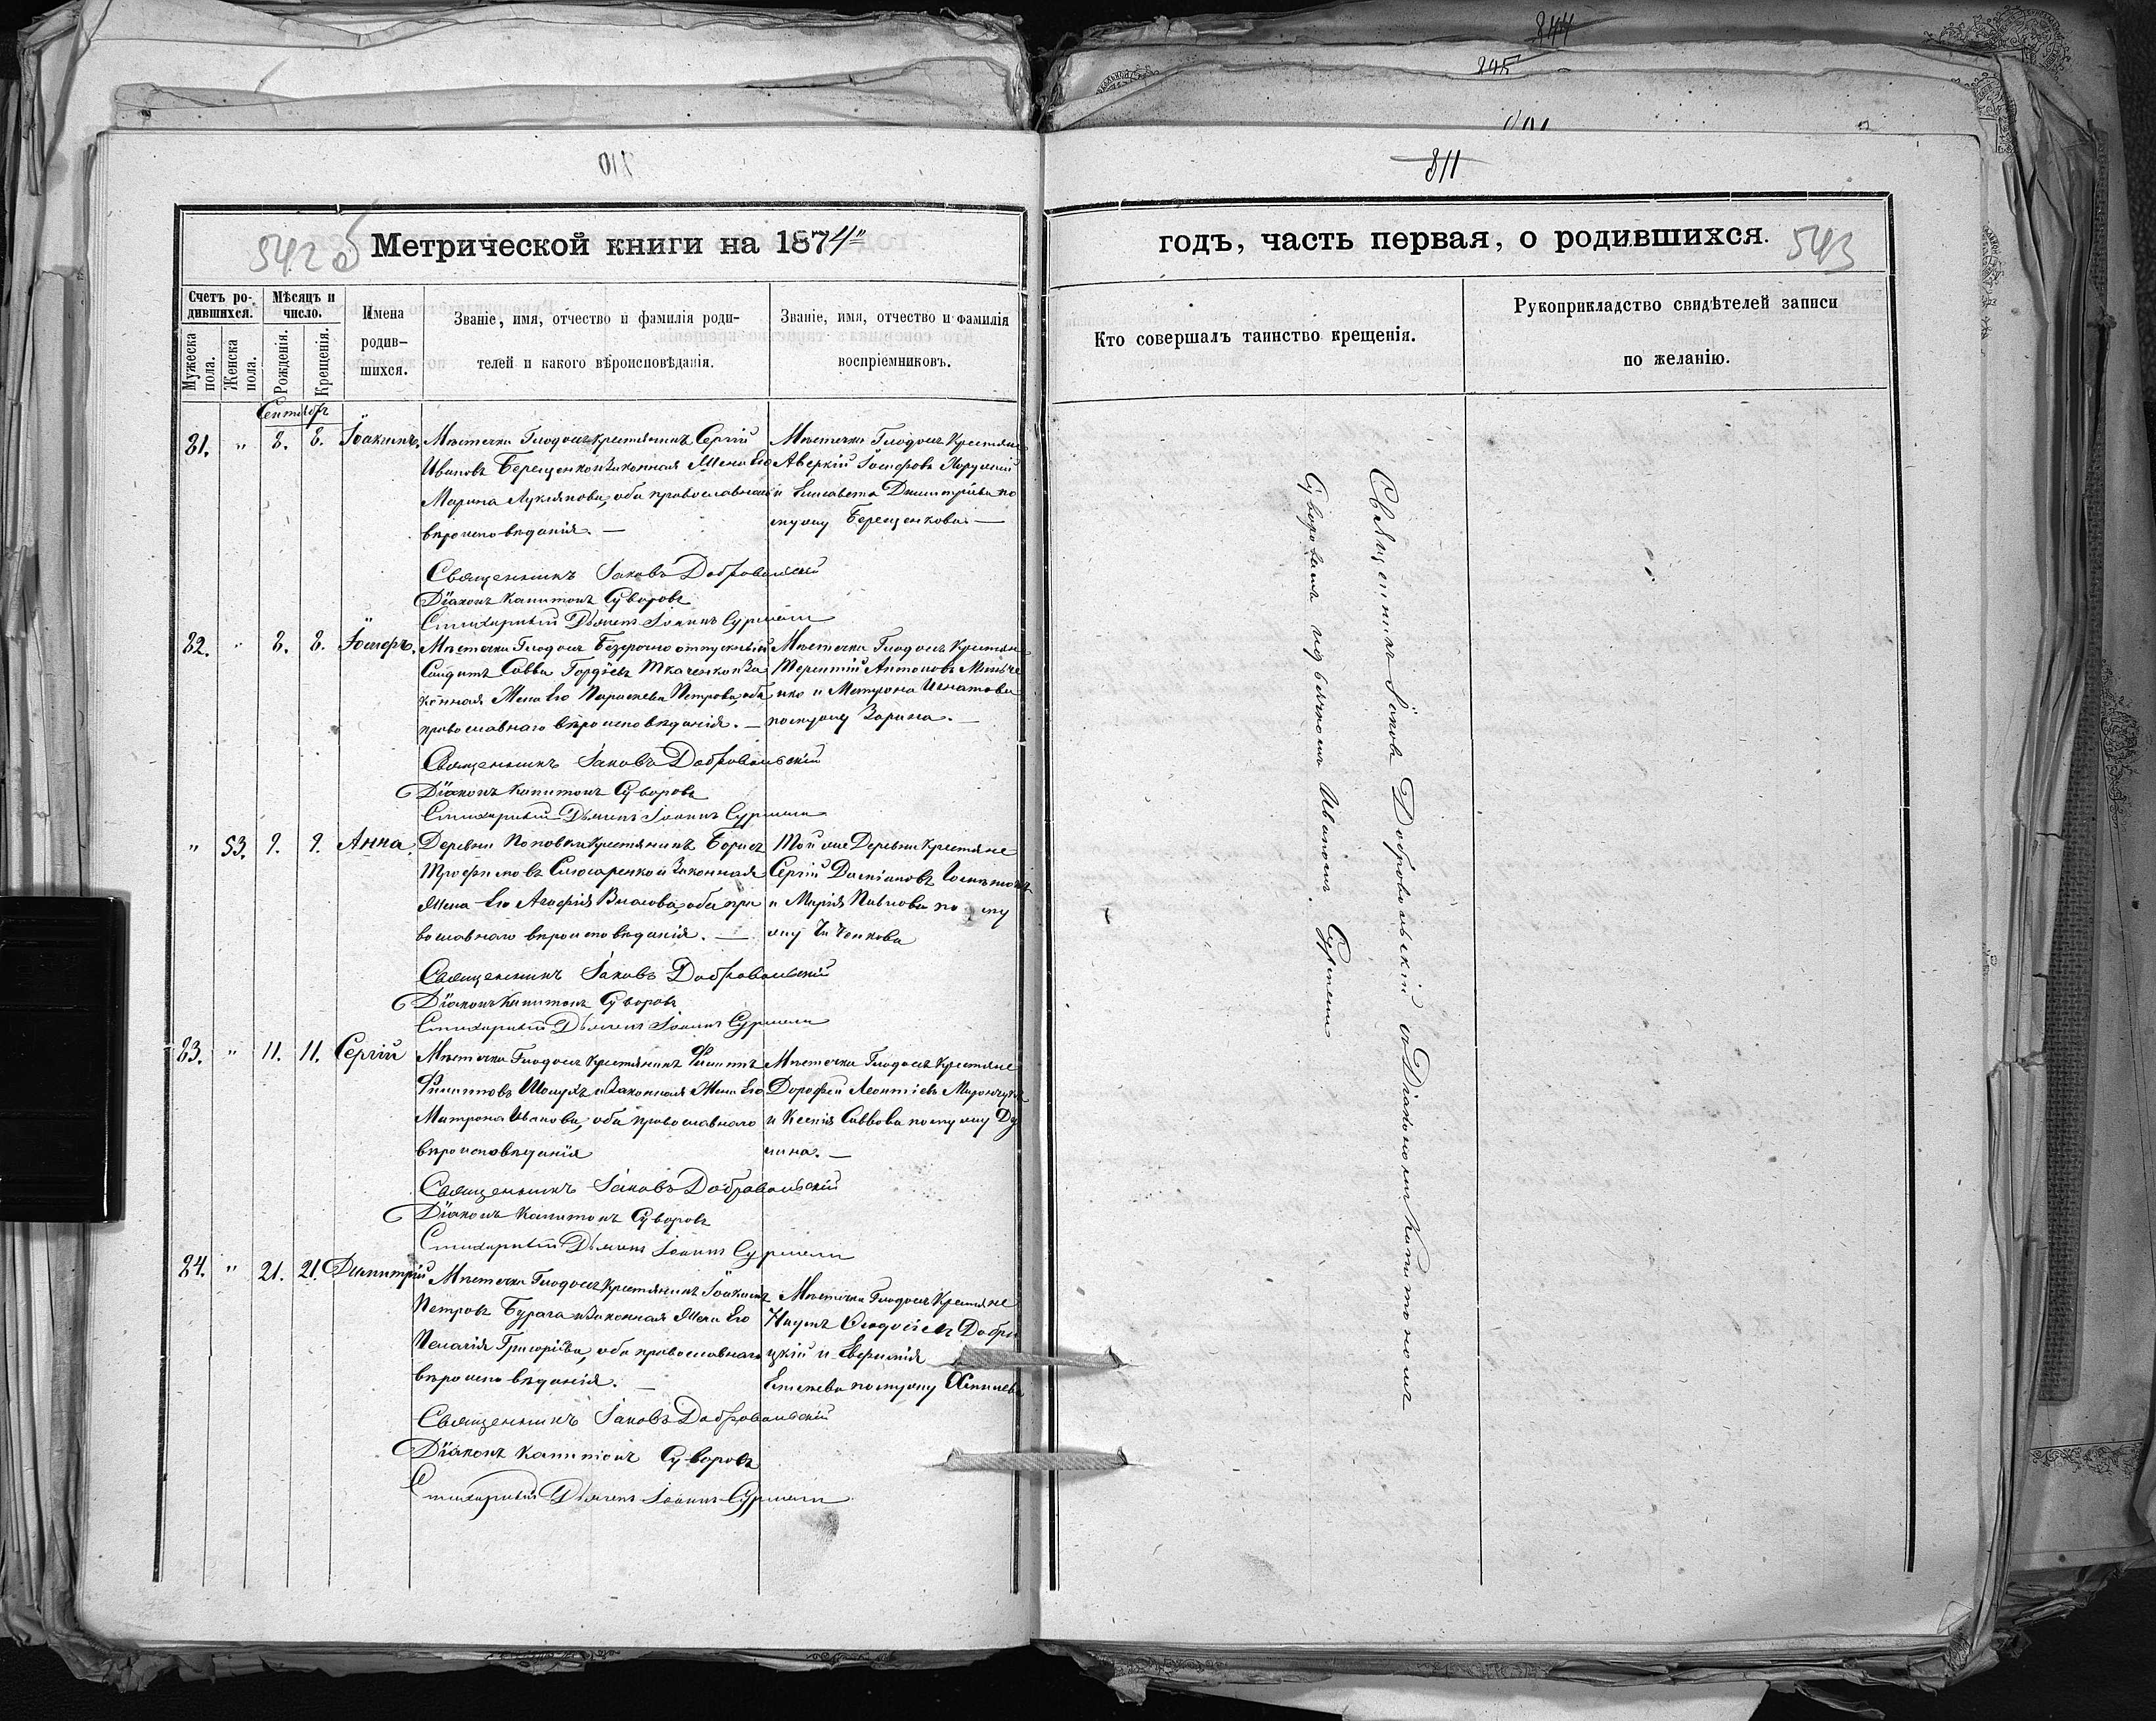 811
542 об
Метрической книги на 1874
годъ, часть первая, о родившихся.
543
Счетъ ро-
дившихся.
Мѣсяцъ и
число.
Имена
родив-
шихся.
Званіе, имя, отчество и фамилія роди-
телей и какого вѣроисповѣданія.
Званіе, имя, отчество и фамилія
воспріемниковъ.
Мужеска
пола.
Женска
пола.
Рожденія.
Крещенія.
Кто совершалъ таинство крещенія.
Рукоприкладство свидѣтелей записи
по желанію.
81. " 8. 8. Іоакимъ. Мѣстечка Глодосъ крестьянинъ Сергій
Ивановъ Берещенко и законная Жена Его
Марина Лукіянова, оба православнаго
вѣроисповѣданія. —
Мѣстечка Глодосъ Крестьяне
Аверкій Іосифовъ
и Елисавета Димитріева по
мужу Берещенкова —
Священникъ Іаковъ Добровольскій
Діаконъ Капитонъ Суворовъ
Стихарный Дьячекъ Іоаннъ
82. " 8. 8. Іосифъ. Мѣстечка Глодосъ Безсрочно отпускный
Солдатъ Савва Гордѣевъ Ткаченко и За
конная Жена Его Параскева Петрова, оба
православнаго вѣроисповѣданія. —
Мѣстечка Глодосъ Крестьяне
Терентій Антоновъ
и Матрона Игнатова
по мужу Зорина. —
Священникъ Іаковъ Добровольскій
Діаконъ Капитонъ Суворовъ
Стихарный Дьячекъ Іоаннъ
" 53. 9. 9. Анна. Деревни Поповки крестьянинъ Борисъ
Трофимовъ Слюсаренко и Законная
Жена Его Агафія Власова, оба пра
вославнаго вѣроисповѣданія. —
Той же Деревни Крестьяне
Сергій Даміановъ
и Марія Павлова по му
жу
Священникъ Іаковъ Добровольскій
Діаконъ Капитонъ Суворовъ
Стихарный Дьячекъ Іоаннъ
83. " 11. 11. Сергій Мѣстечка Глодосъ Крестьянинъ Филиппъ
Филипповъ и Законная Жена Его
Матрона Иванова, оба православнаго
вѣроисповѣданія
Мѣстечка Глодосъ Крестьяне
Дорофей Леонтіевъ
и Ксенія Саввова по мужу
Священникъ Іаковъ Добровольскій
Діаконъ Капитонъ Суворовъ
Стихарный Дьячекъ Іоаннъ
84. " 21. 21. Димитрій Мѣстечка Глодосъ Крестьянинъ Іоакимъ
Петровъ Бурага и Законная Жена Его
Пелагія Григоріева, оба православнаго
вѣроисповѣданія. —
Мѣстечка Глодосъ Крестьяне
Наумъ
и Евфимія
по мужу
Священникъ Іаковъ Добровольскій
Діаконъ Капитонъ Суворовъ
Стихарный Дьячекъ Іоаннъ
Священникъ Іаковъ Добровольскій съ Діакономъ Капитономъ
Суворовымъ и Дьячкомъ Иваномъ